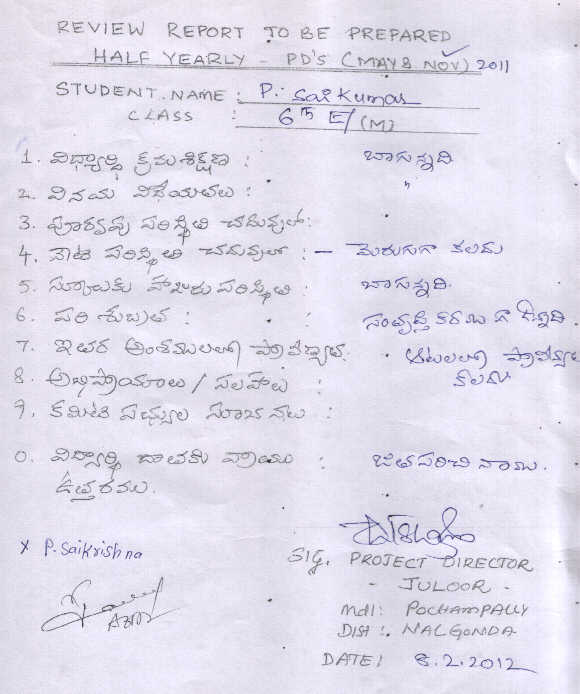 REVIEW REPORT TO BE PREPARED
HALF YEARLY - PD'S (MAY & NOV) 2011
STUDENT. NAME : P. Sai Kumar
CLASS : 6th E/(M)
1. విద్యార్థి క్రమశిక్షణ : బాగున్నది
2. వినయ విధేయతలు : "
3. పూర్వపు పరిస్థితి చదువులో :
4. నేటి పరిస్థితి చదువులో : - మెరుగుగా కలదు
5. స్కూలుకు హాజరు పరిస్థితి : బాగున్నది.
6. పరిశుబ్రత : సంతృప్తి కరముగా
7. ఇతర అంశములలో ప్రావీణ్యత. ఆటలలో ప్రావీణ్యం
కలదు
8. అభిప్రాయాలు / సలహాలు :
9. కమిటి సభ్యుల సూచనలు :
0. విద్యార్థి దాతకు వ్రాయు : జతపరిచి నాము.
ఉత్తరము.
x P. Saikrishna
SIG. PROJECT DIRECTOR
- JULOOR -
Mdl: POCHAMPALLY
DIST :. NALGONDA
DATE: 8.2.2012